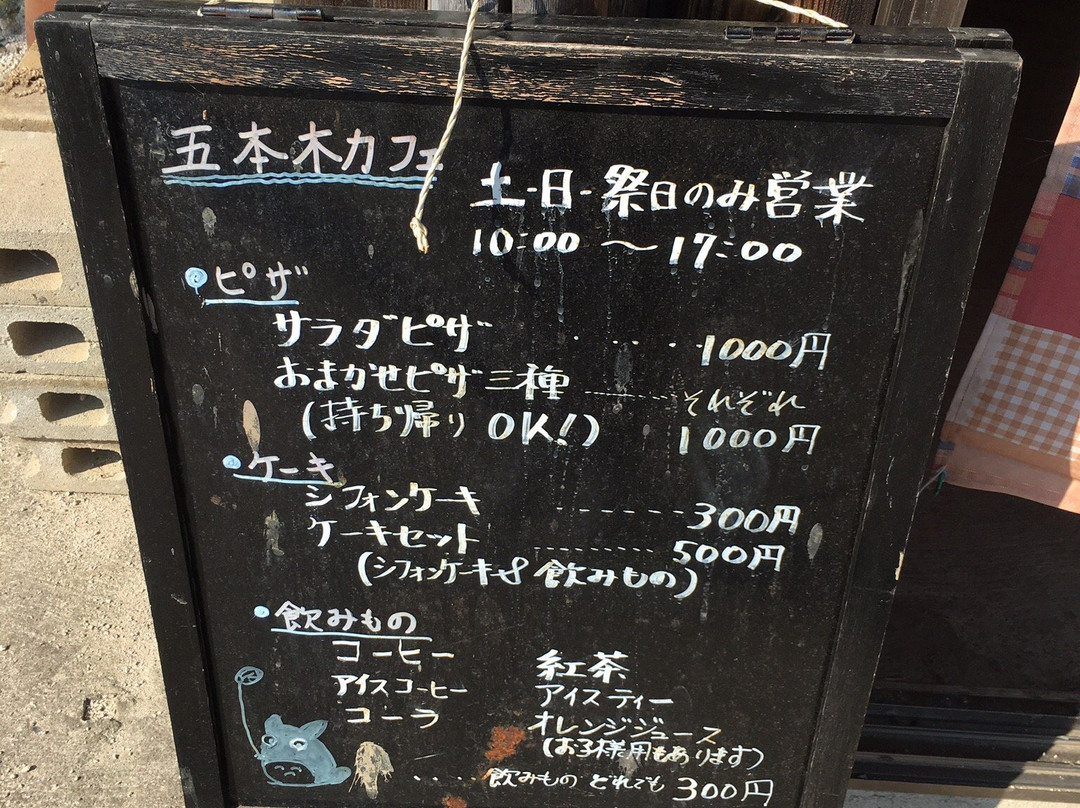 五本木カフェ
土-日-祭日のみ営業
10:00 〜 17:00
ピザ
サラダピザ ‥‥ 1000円
おまかせピザ三種 ‥‥ それぞれ
(持ち帰り OK!) 1000円
ケーキ
シフォンケーキ ‥‥ 300円
ケーキセット ‥‥ 500円
(シフォンケーキ& 飲みもの)
飲みもの
コーヒー 紅茶
アイスコーヒー アイスティー
コーラ オレンジジュース
(お子様用もあります)
‥‥ 飲みもの どれでも 300円